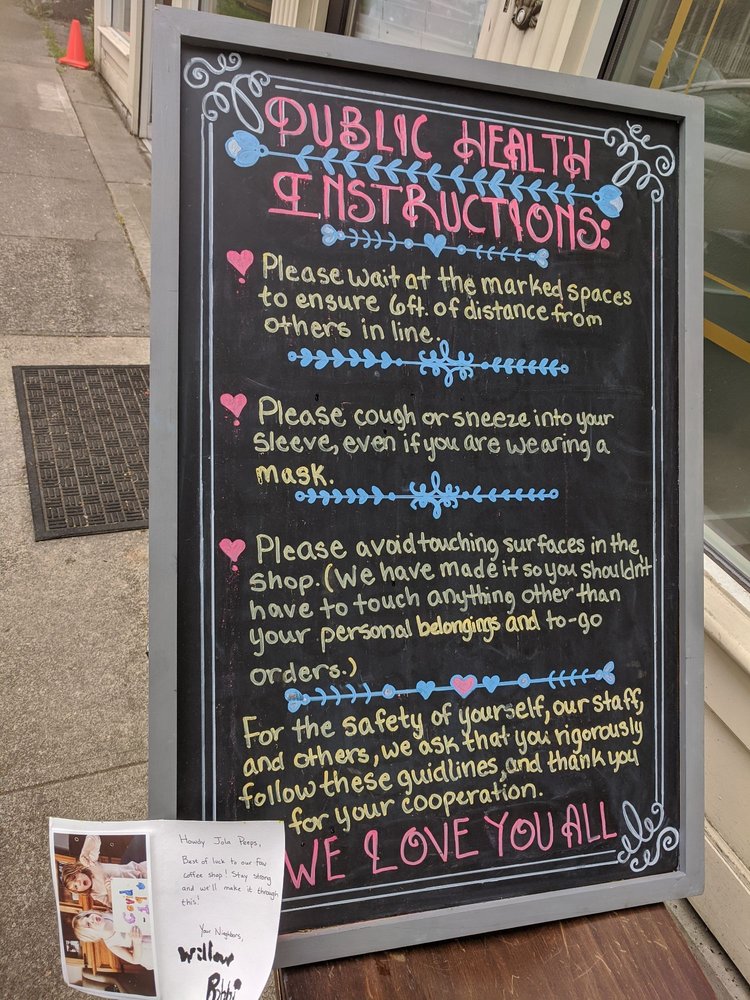 PUBLIC HEALTH
INSTRUCTIONS:
Please wait at the marked spaces
to ensure 6ft. of distance from
others in line.
Please cough or sneeze into your
sleeve, even if you are wearing a
mask.
Please avoid touching surfaces in the
shop. (We have made it so you shouldn't
have to touch anything other than
your personal belongings and to-go
orders.)
For the safety of yourself, our staff,
and others, we ask that you rigorously
follow these guidlines, and thank you
for your cooperation.
WE LOVE YOU ALL
Howdy Jola Peeps,
Best of luck to our fav
coffee shop! Stay strong
and we'll make it through
this!
Your Neighbors,
Willow